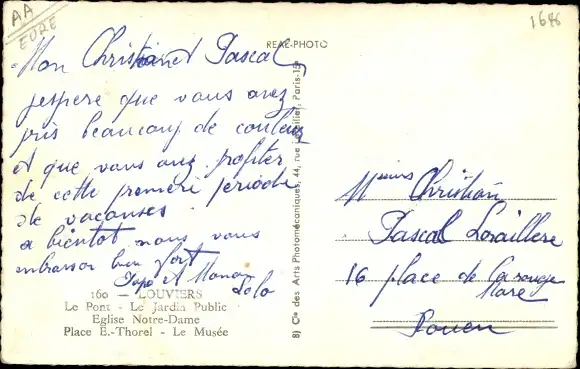 AA
EURE
1686
REAL-PHOTO
Mon Christian et Pascal
jespere que vous avez
pris beaucoup de couleurs
et que vous avez profiter
de cette premiere periode
de vacanses
a bientot nous vous
embrasson bien fort
Papa et Maman
Lolo
160 — LOUVIERS
Le Pont - Le Jardin Public
Eglise Notre-Dame
Place E.-Thorel - Le Musée
B) Cie des Arts Photomécaniques, 44, rue Letellier, Paris-15e
Messieurs Christian
Pascal Loraillere
16 place de la rouge
Mare
Rouen